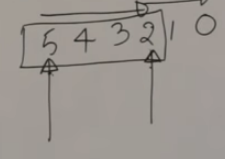 5 4 3 2 1 0